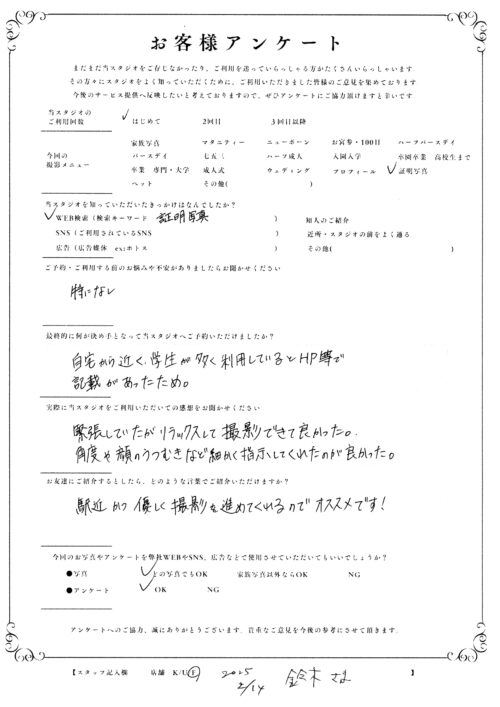 お客様アンケート
まだまだ当スタジオをご存じなかったり、ご利用を迷っていらっしゃる方がたくさんいらっしゃいます.
その方々にスタジオをよく知っていただくために、ご利用いただきました皆様のご意見を集めております
今後のサービス提供へ反映したいと考えておりますので、ぜひアンケートにご協力頂けますと幸いです
当スタジオの
ご利用回数
✓はじめて 2回目 3回目以降
今回の
撮影メニュー
家族写真 マタニティー ニューボーン お宮参・100日 ハーフバースデイ
バースデイ 七五三 ハーフ成人 入園入学 卒園卒業 高校生まで
卒業 専門・大学 成人式 ウェディング プロフィール ✓証明写真
ペット その他( )
当スタジオを知っていただいたきっかけはなんでしたか?
✓WEB検索(検索キーワード 証明写真 ) 知人のご紹介
SNS(ご利用されているSNS ) 近所・スタジオの前をよく通る
広告(広告媒体 ex:ポトス ) その他( )
ご予約・ご利用する前のお悩みや不安がありましたらお聞かせください
特になし
最終的に何が決め手となって当スタジオへご予約いただけましたか?
自宅から近く、学生が多く利用しているとHP等で
記載があったため。
実際に当スタジオをご利用いただいての感想をお聞かせください
緊張していたがリラックスして撮影できて良かった。
角度や顔のうつむきなど細かく指示してくれたのが良かった。
お友達にご紹介するとしたら、どのような言葉でご紹介いただけますか?
駅近かつ優しく撮影を進めてくれるのでオススメです!
今回のお写真やアンケートを弊社WEBやSNS、広告などで使用させていただいてもいいでしょうか?
●写真 ✓どの写真でもOK 家族写真以外ならOK NG
●アンケート ✓OK NG
アンケートへのご協力、誠にありがとうございます. 貴重なご意見を今後の参考にさせて頂きます.
【スタッフ記入欄 店舗 K/U/F 2025 2/14 鈴木さま 】